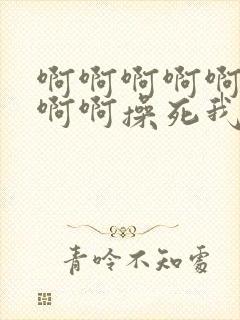 啊啊啊啊啊
啊啊操死我
青吟不知处